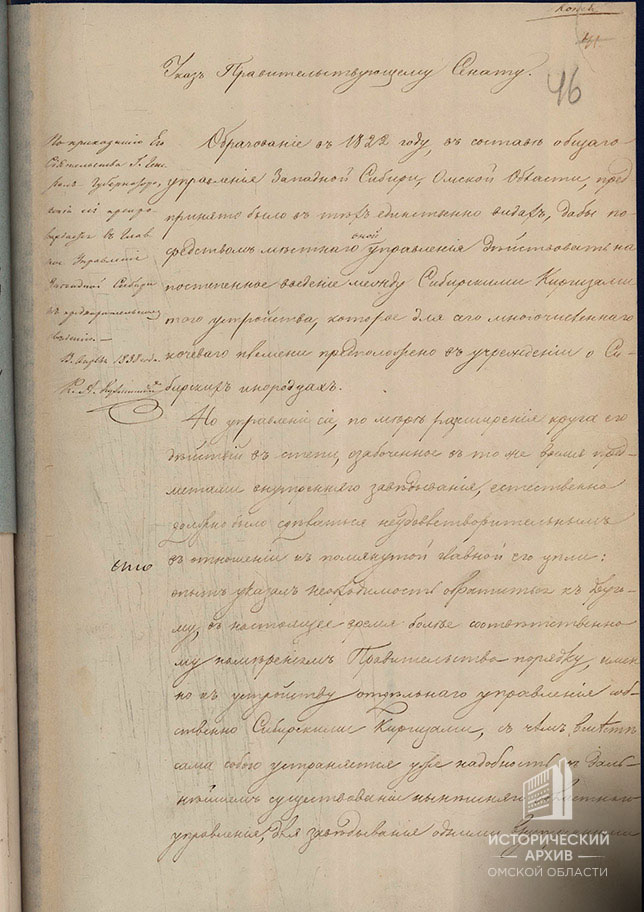 Копія
46
Указъ Правительствующему Сенату.
По приказанію Его
Сіятельства Г. Гене
Губернатора,
въ Глав
ное Управленіе
Западной Сибири
1838 года.
Образованіе въ 1822 году, въ составѣ общаго
управленія Западной Сибири, Омской Области, пред
принято было въ тѣхъ единственно видахъ, дабы по
средствомъ мѣстнаго оной управленія дѣйствовать на
постепенное введеніе между Сибирскими Киргизами
того устройства, которое для сего многочисленнаго
кочеваго племени предположено въ учрежденіи о Си
бирскихъ инородцахъ.
Но управленіе сіе, по мѣрѣ разширенія круга его
дѣйствій въ степи, озабоченное въ то же время пред
метами внутренняго завѣдыванія, естественно
должно было сдѣлаться неудовлетворительнымъ
въ отношеніи къ помянутой главной его цѣли:
опытъ указалъ необходимость обратиться къ друго
му, въ настоящее время болѣе соотвѣтственно
му намѣреніямъ Правительства порядку, имен
но къ устройству отдѣльнаго управленія соб
ственно Сибирскими Киргизами, съ чѣмъ вмѣстѣ
сама собою устраняется уже надобность въ даль
нѣйшемъ существованіи нынѣшняго областнаго
управленія, для завѣдыванія одними
ИСТОРИЧЕСКИЙ
АРХИВ
ОМСКОЙ ОБЛАСТИ